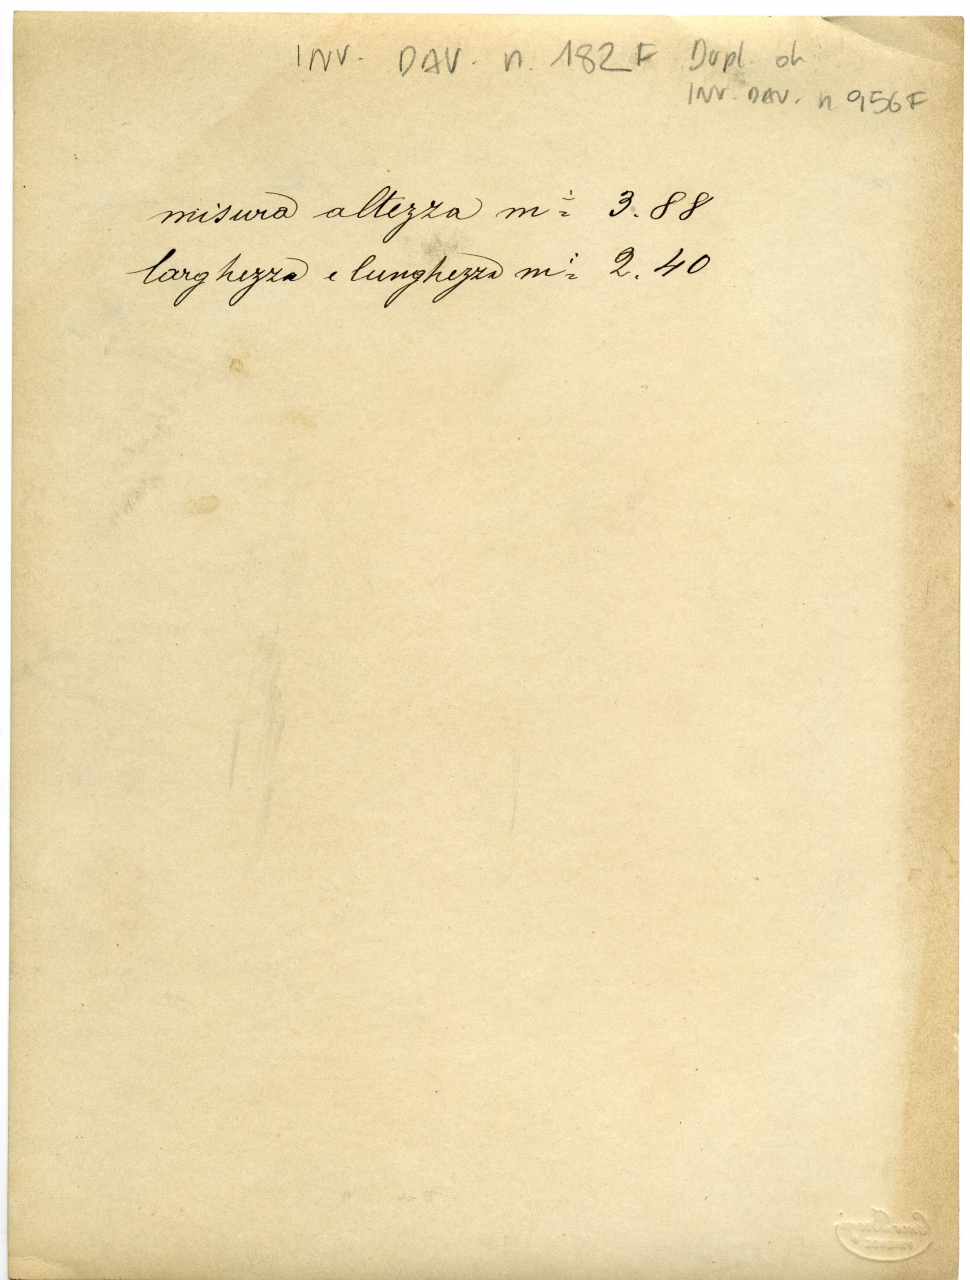 INV. DAV. n. 182F Dupl. di
INV. DAV. n 956F
misura altezza mⁱ 3.88
larghezza e lunghezza mⁱ 2.40